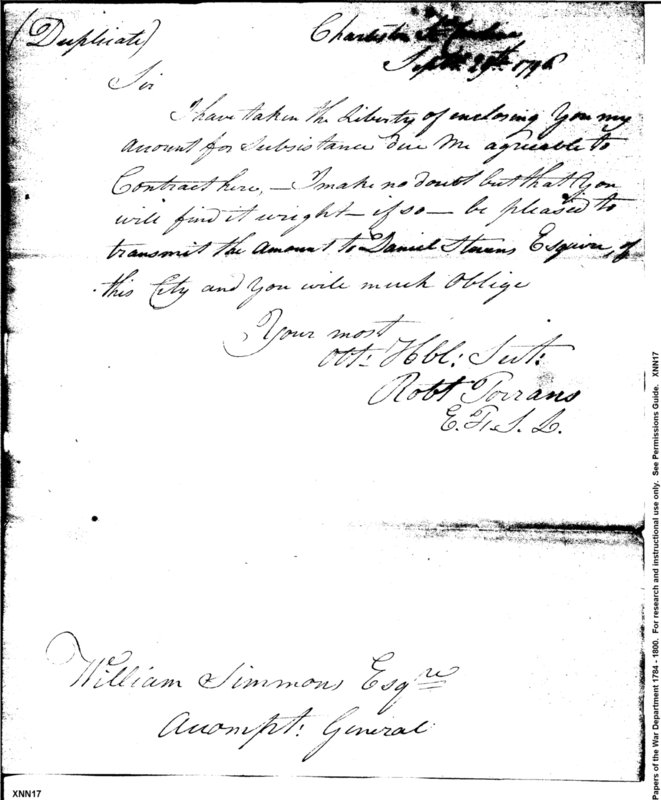 (Duplicate)
Charleston So. Carolina
Septr. 29th. 1796
Sir
I have taken the Liberty of enclosing You my
Account for Subsistance due Me agreeable to
Contract here, – I make no doubt but that You
will find it wright – if so – be pleased to
transmit the Amount to Daniel Stevens Esquire, of
this City and You will much Oblige
Your most
Obt: Hbl: Servt:
Robt Torrans
William Simmons Esqre
Accompt: General
Papers of the War Department 1784 - 1800. For research and instructional use only. See Permissions Guide. XNN17
XNN17